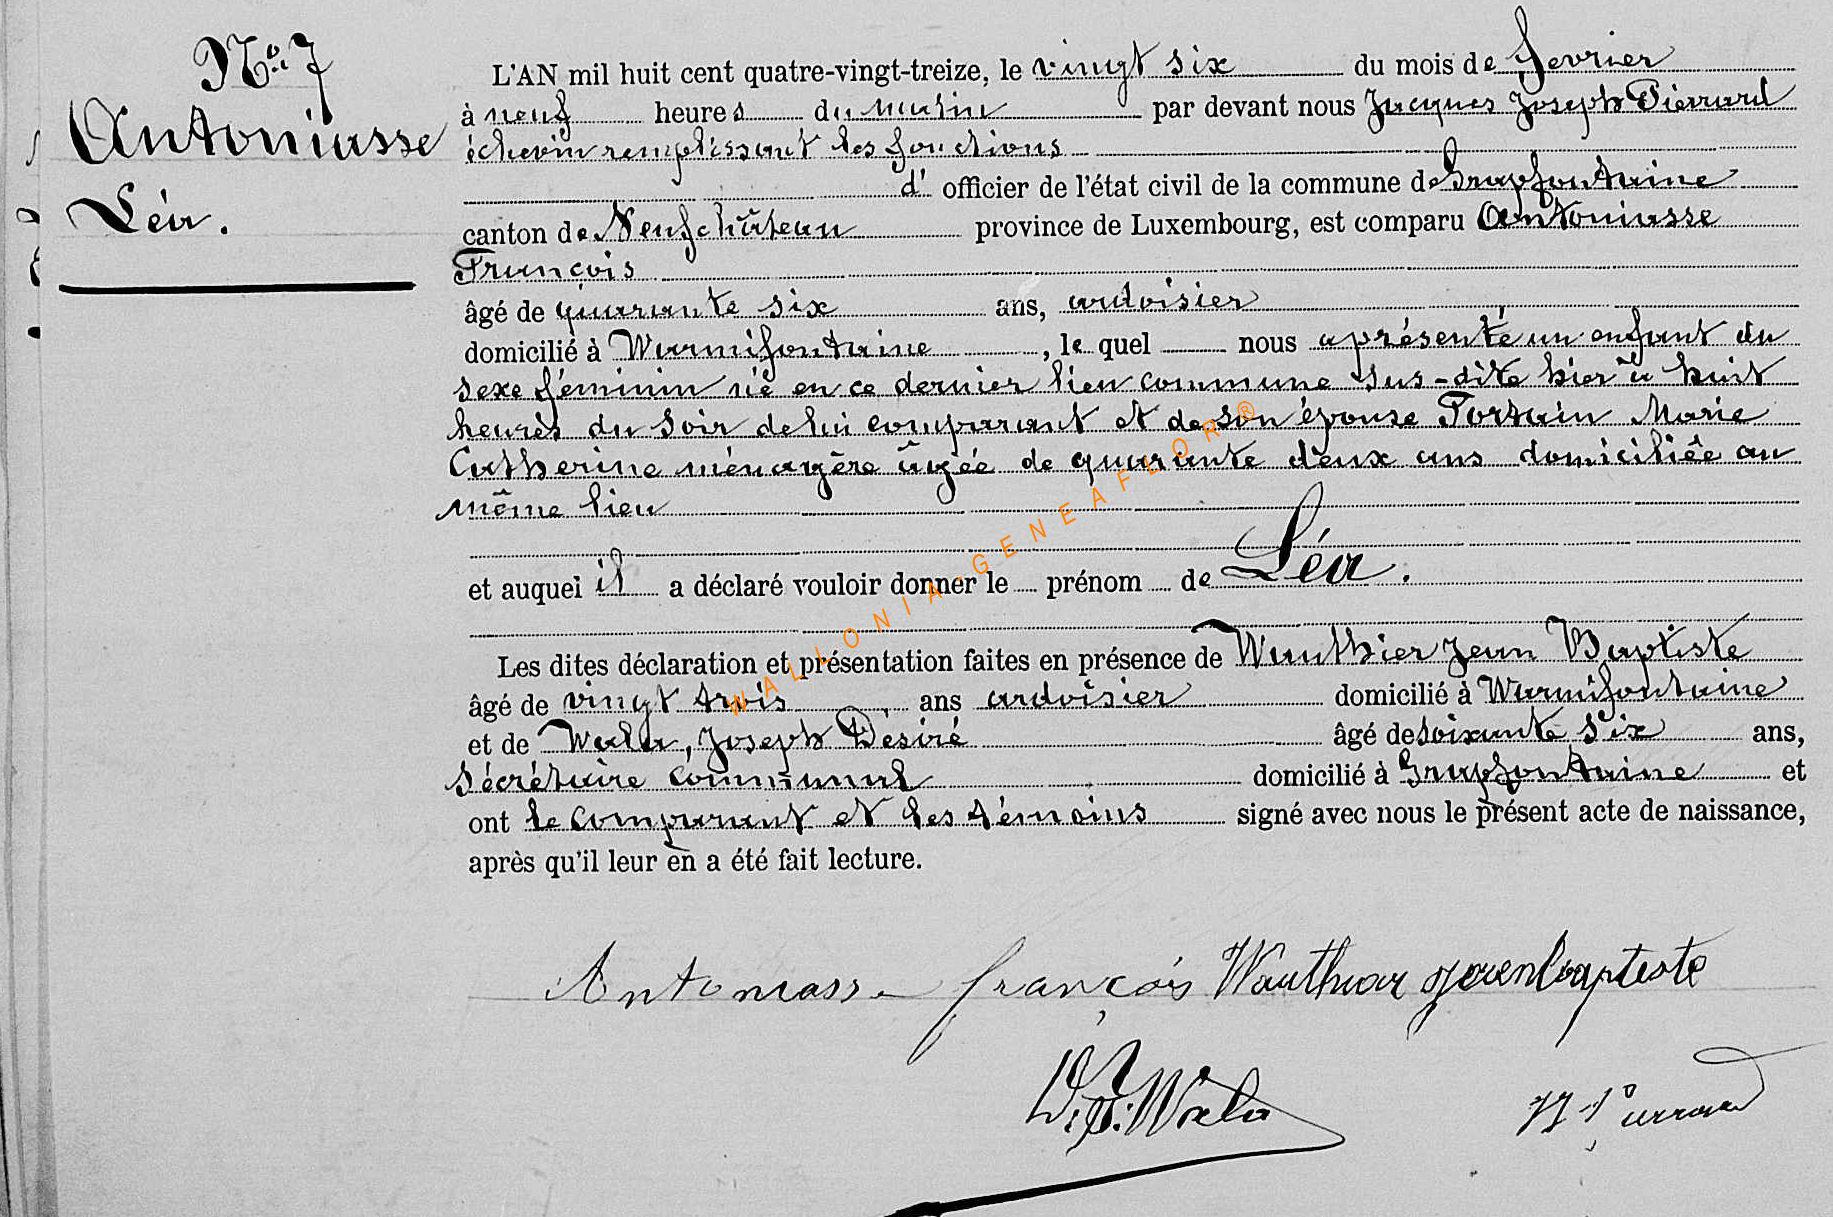 N° 7
Antoniasse
Léa.
L'AN mil huit cent quatre-vingt-treize, le vingt six du mois de fevrier
à neuf heures du matin par devant nous Jacques Joseph Pierrard
échevin remplissant les fonctions
d' officier de l'état civil de la commune de Grapfontaine
canton de Neufchâteau province de Luxembourg, est comparu Antoniasse
François
âgé de quarante six ans, ardoisier
domicilié à Warmifontaine, le quel nous a présenté un enfant du
sexe féminin né en ce dernier lieu commune sus-dite hier à huit
heures du soir de lui comparant et de son épouse Portain Marie
Catherine ménagère âgée de quarante deux ans domiciliée au
même lieu
et auquel il a déclaré vouloir donner le prénom de Léa.
Les dites déclaration et présentation faites en présence de Wauthier Jean Baptiste
âgé de vingt trois ans ardoisier domicilié à Warmifontaine
et de Wala, Joseph Désiré âgé de soixante six ans,
sécrétaire communal domicilié à Grapfontaine et
ont le comparant et les témoins signé avec nous le présent acte de naissance,
après qu'il leur en a été fait lecture.
WALLONIA-GENEAFLOR®
Antoniasse françois Wauthier jean baptiste
D. J. Wala